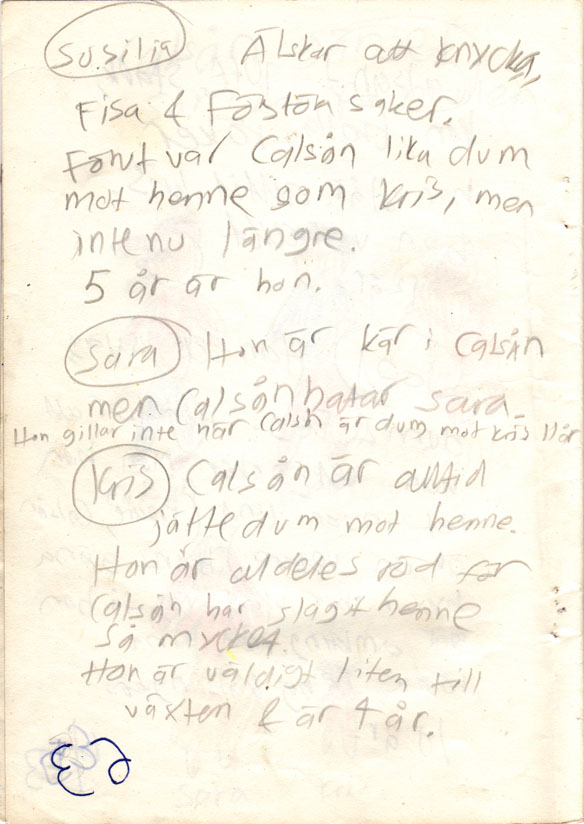 Susilia Älskar att knycka,
Fisa & Förstöra saker.
Förut var Calsån lika dum
mot henne som Kris, men
inte nu längre.
5 år är hon.
Sara Hon är kär i Calsån
men Calsån hatar Sara
Hon gillar inte när Calsån är dum mot Kris 11år
Kris Calsån är alltid
jättedum mot henne.
Hon är aldeles röd för
Calsån har slagit henne
så mycket.
Hon är väldigt liten till
växten & är 4 år.